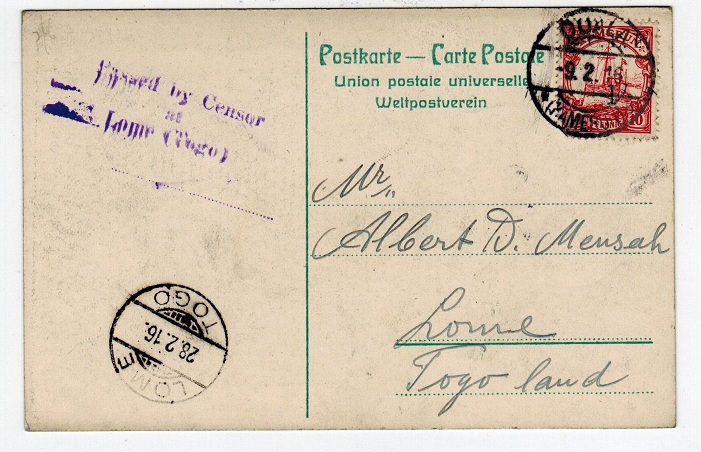 Passed by Censor
at
Lome (Togo)
Postkarte — Carte Postale
Union postale universelle
Weltpostverein
9.2.16
10
Mr
Albert D. Mensah
Lome
Togo land
TOGO
28.2.16.
LOME